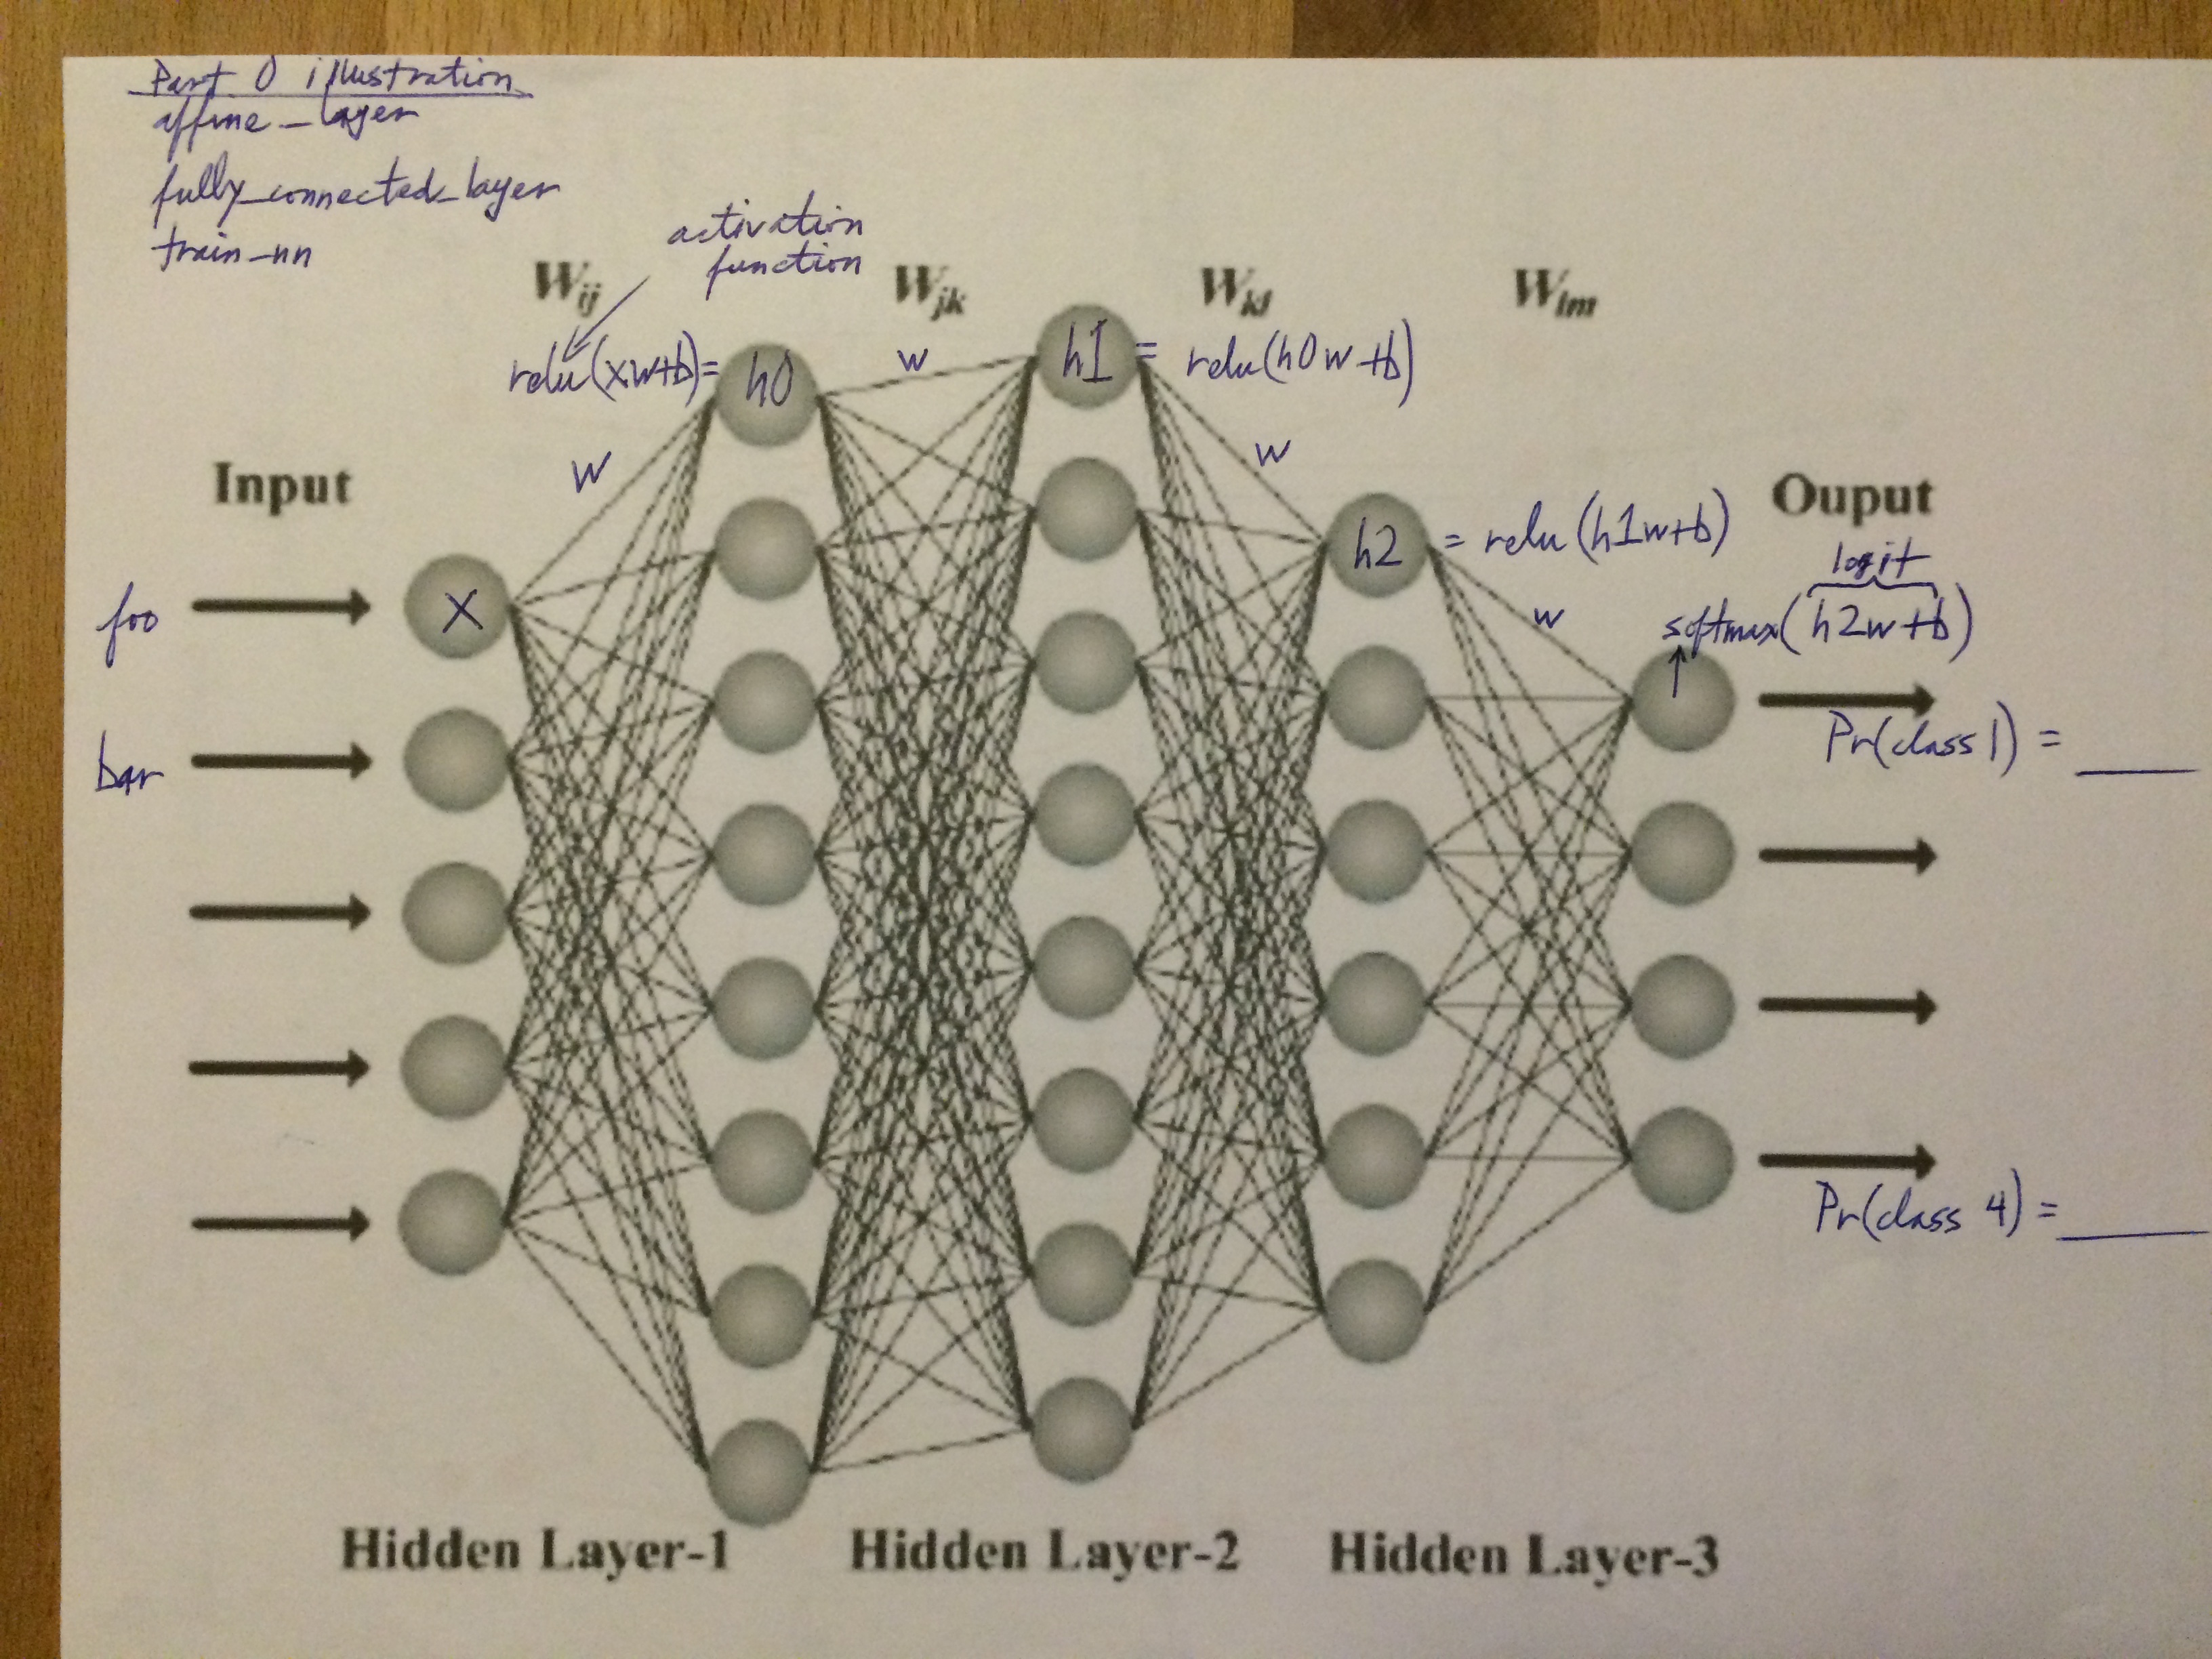 Part 0 illustration
affine_layer
fully_connected_layer
train_nn
activation
function
Wij
Wjk
Wkl
Wlm
relu(xw+b)=
h0
w
h1
= relu(h0w+b)
w
w
Input
Ouput
h2
= relu(h1w+b)
logit
softmax(h2w+b)
w
foo
x
Pr(class 1) = ____
bar
Pr(class 4) = ____
Hidden Layer-1
Hidden Layer-2
Hidden Layer-3